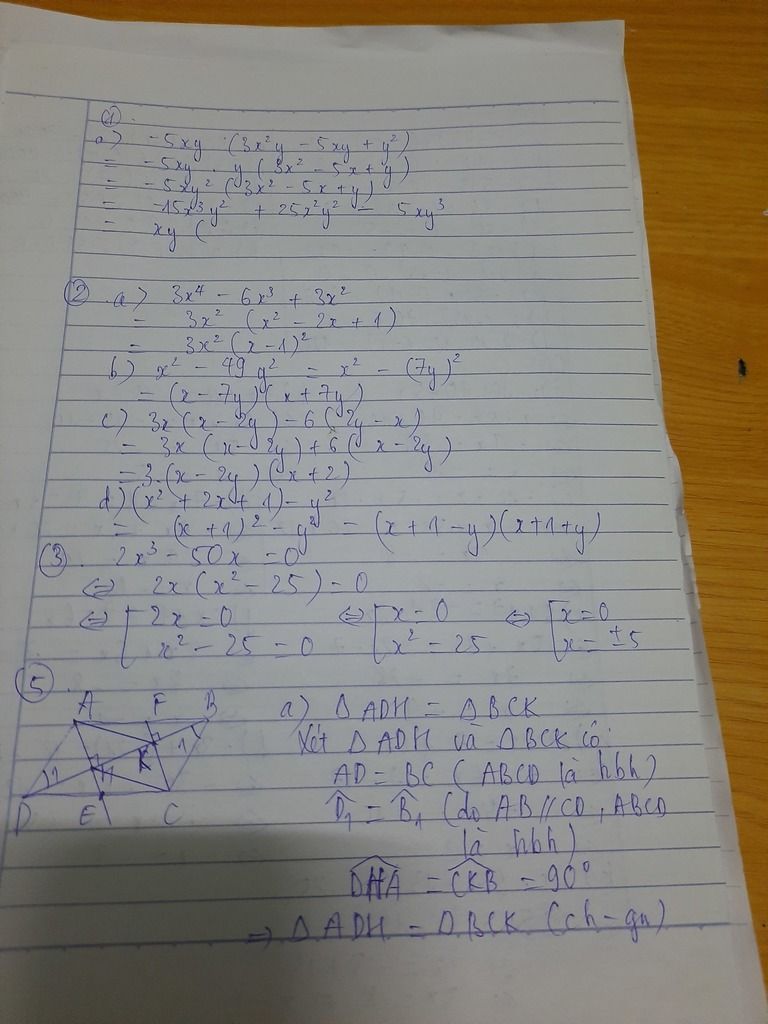 ①
a) -5xy (3x²y - 5xy + y²)
= -5xy . y (3x² - 5x + y)
= -5xy² (3x² - 5x + y)
= -15x³y² + 25x²y² - 5xy³
= xy (
② a) 3x⁴ - 6x³ + 3x²
= 3x² (x² - 2x + 1)
= 3x² (x-1)²
b) x² - 49y² = x² - (7y)²
= (x - 7y)(x + 7y)
c) 3x(x - 2y) - 6(2y - x)
= 3x (x - 2y) + 6(x - 2y)
= 3.(x - 2y)(x + 2)
d) (x² + 2x + 1) - y²
= (x + 1)² - y² = (x + 1 - y)(x + 1 + y)
③ 2x³ - 50x = 0
⇔ 2x(x² - 25) = 0
⇔ [2x = 0 ⇔ [x = 0 ⇔ [x = 0
x² - 25 = 0 x² = 25 x = ±5
⑤
A F B a) ΔADH = ΔBCK
1 K Xét ΔADH và ΔBCK có
1 H AD = BC (ABCD là hbh)
D E C D̂₁ = B̂₁ (do AB // CD, ABCD
là hbh)
DHA = CKB = 90°
⇒ ΔADH = ΔBCK (ch - gn)